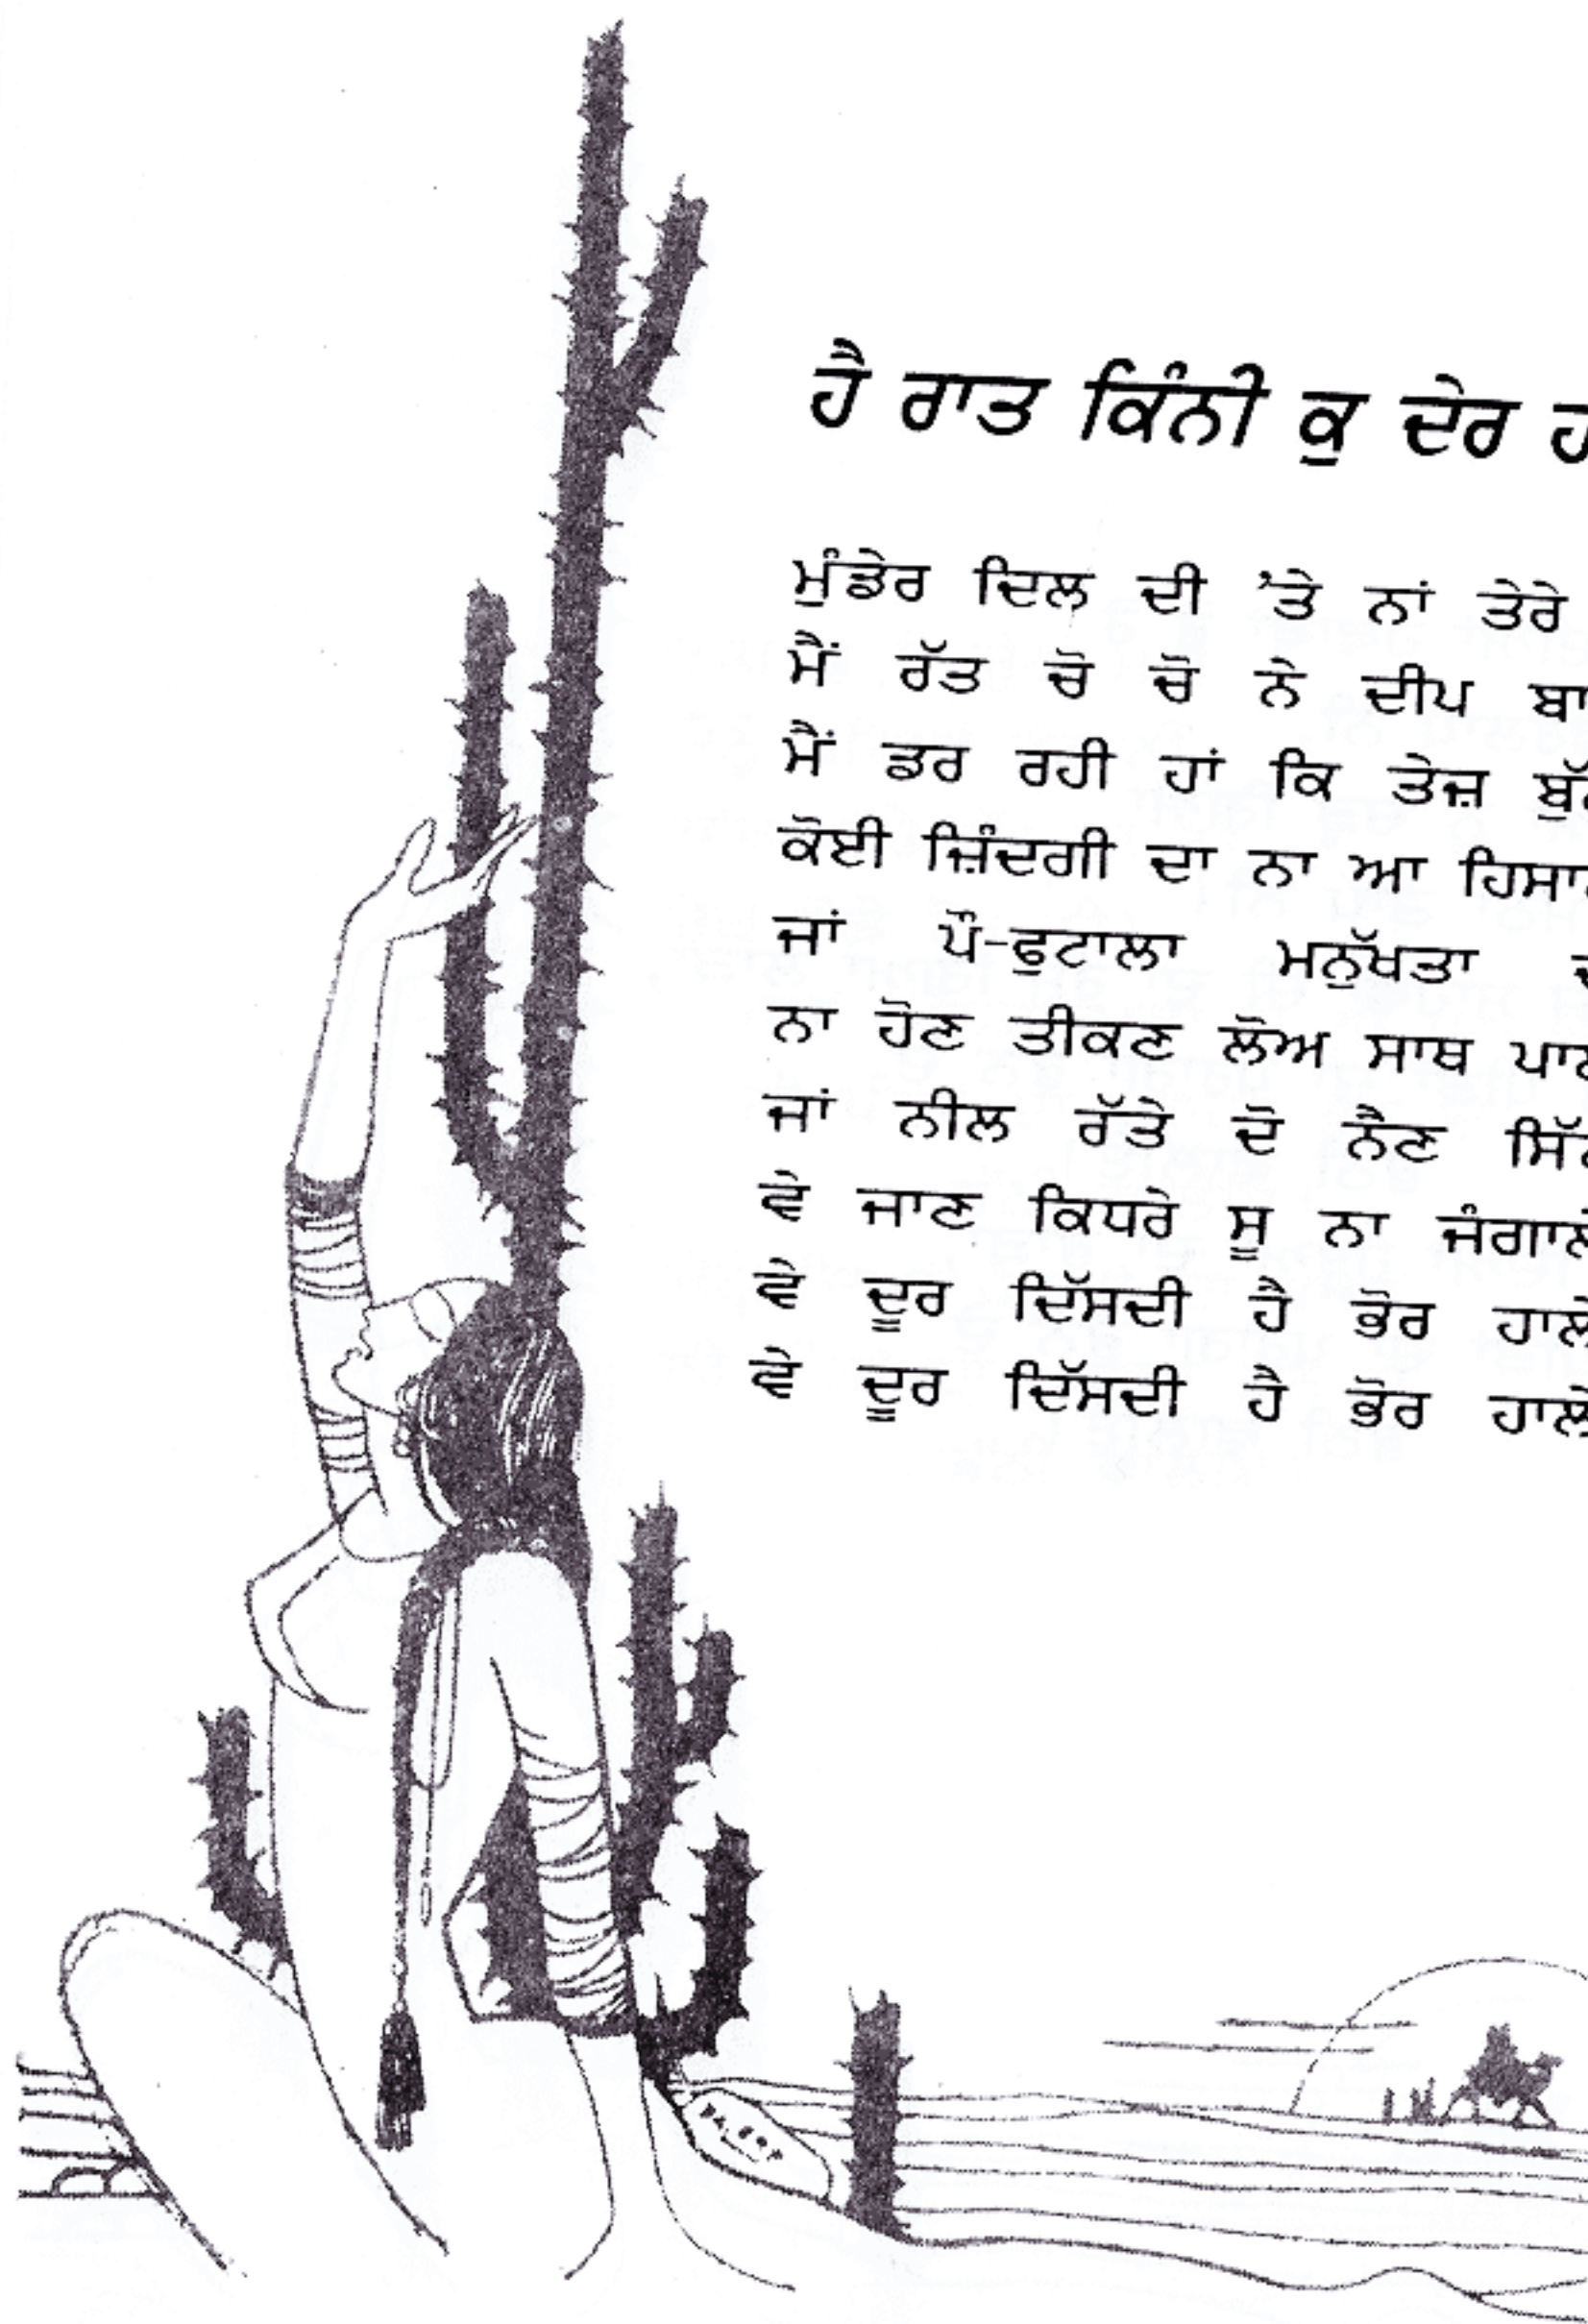 ਹੈ ਰਾਤ ਕਿੰਨੀ ਕੁ ਦੇਰ
ਮੁੰਡੇਰ ਦਿਲ ਦੀ 'ਤੇ ਨਾਂ ਤੇਰੇ
ਮੈਂ ਰੱਤ ਚੋ ਚੋ ਨੇ ਦੀਪ
ਮੈਂ ਡਰ ਰਹੀ ਹਾਂ ਕਿ ਤੇਜ਼
ਕੋਈ ਜ਼ਿੰਦਗੀ ਦਾ ਨਾ ਆ
ਜਾਂ ਪੌ-ਫੁਟਾਲਾ ਮਨੁੱਖਤਾ
ਨਾ ਹੋਣ ਤੀਕਣ ਲੋਅ ਸਾਥ
ਜਾਂ ਨੀਲ ਰੱਤੇ ਦੋ ਨੈਣ
ਵੇ ਜਾਣ ਕਿਧਰੇ ਸੂ ਨਾ
ਵੇ ਦੂਰ ਦਿੱਸਦੀ ਹੈ ਭੋਰ
ਵੇ ਦੂਰ ਦਿੱਸਦੀ ਹੈ ਭੋਰ